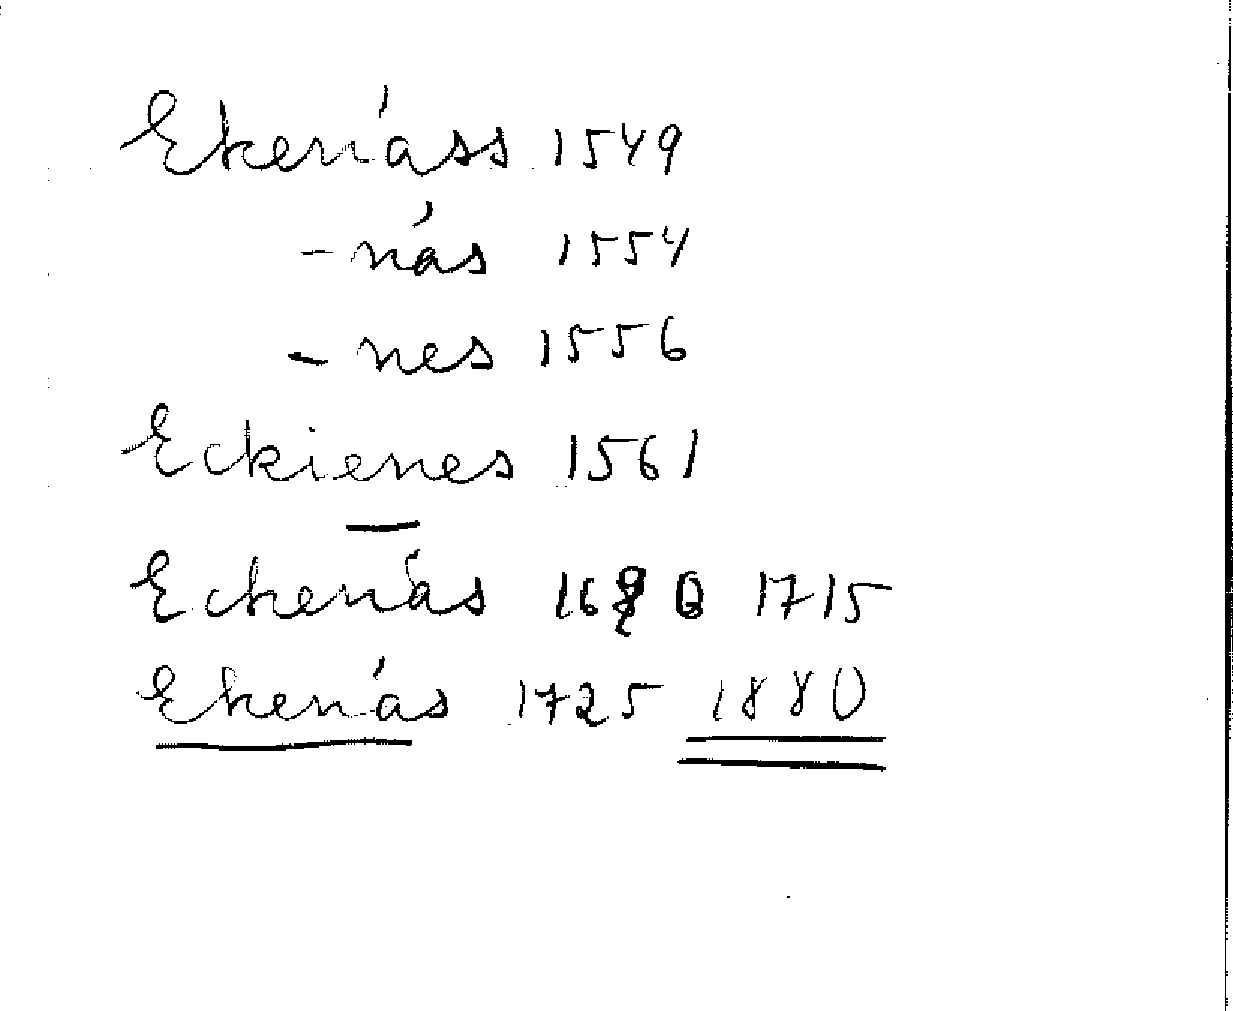 Ekenáss 1549
- nás 1554
- nes 1556
Eckienes 1561
Eckenás 1715
Ekenás 1725 1880